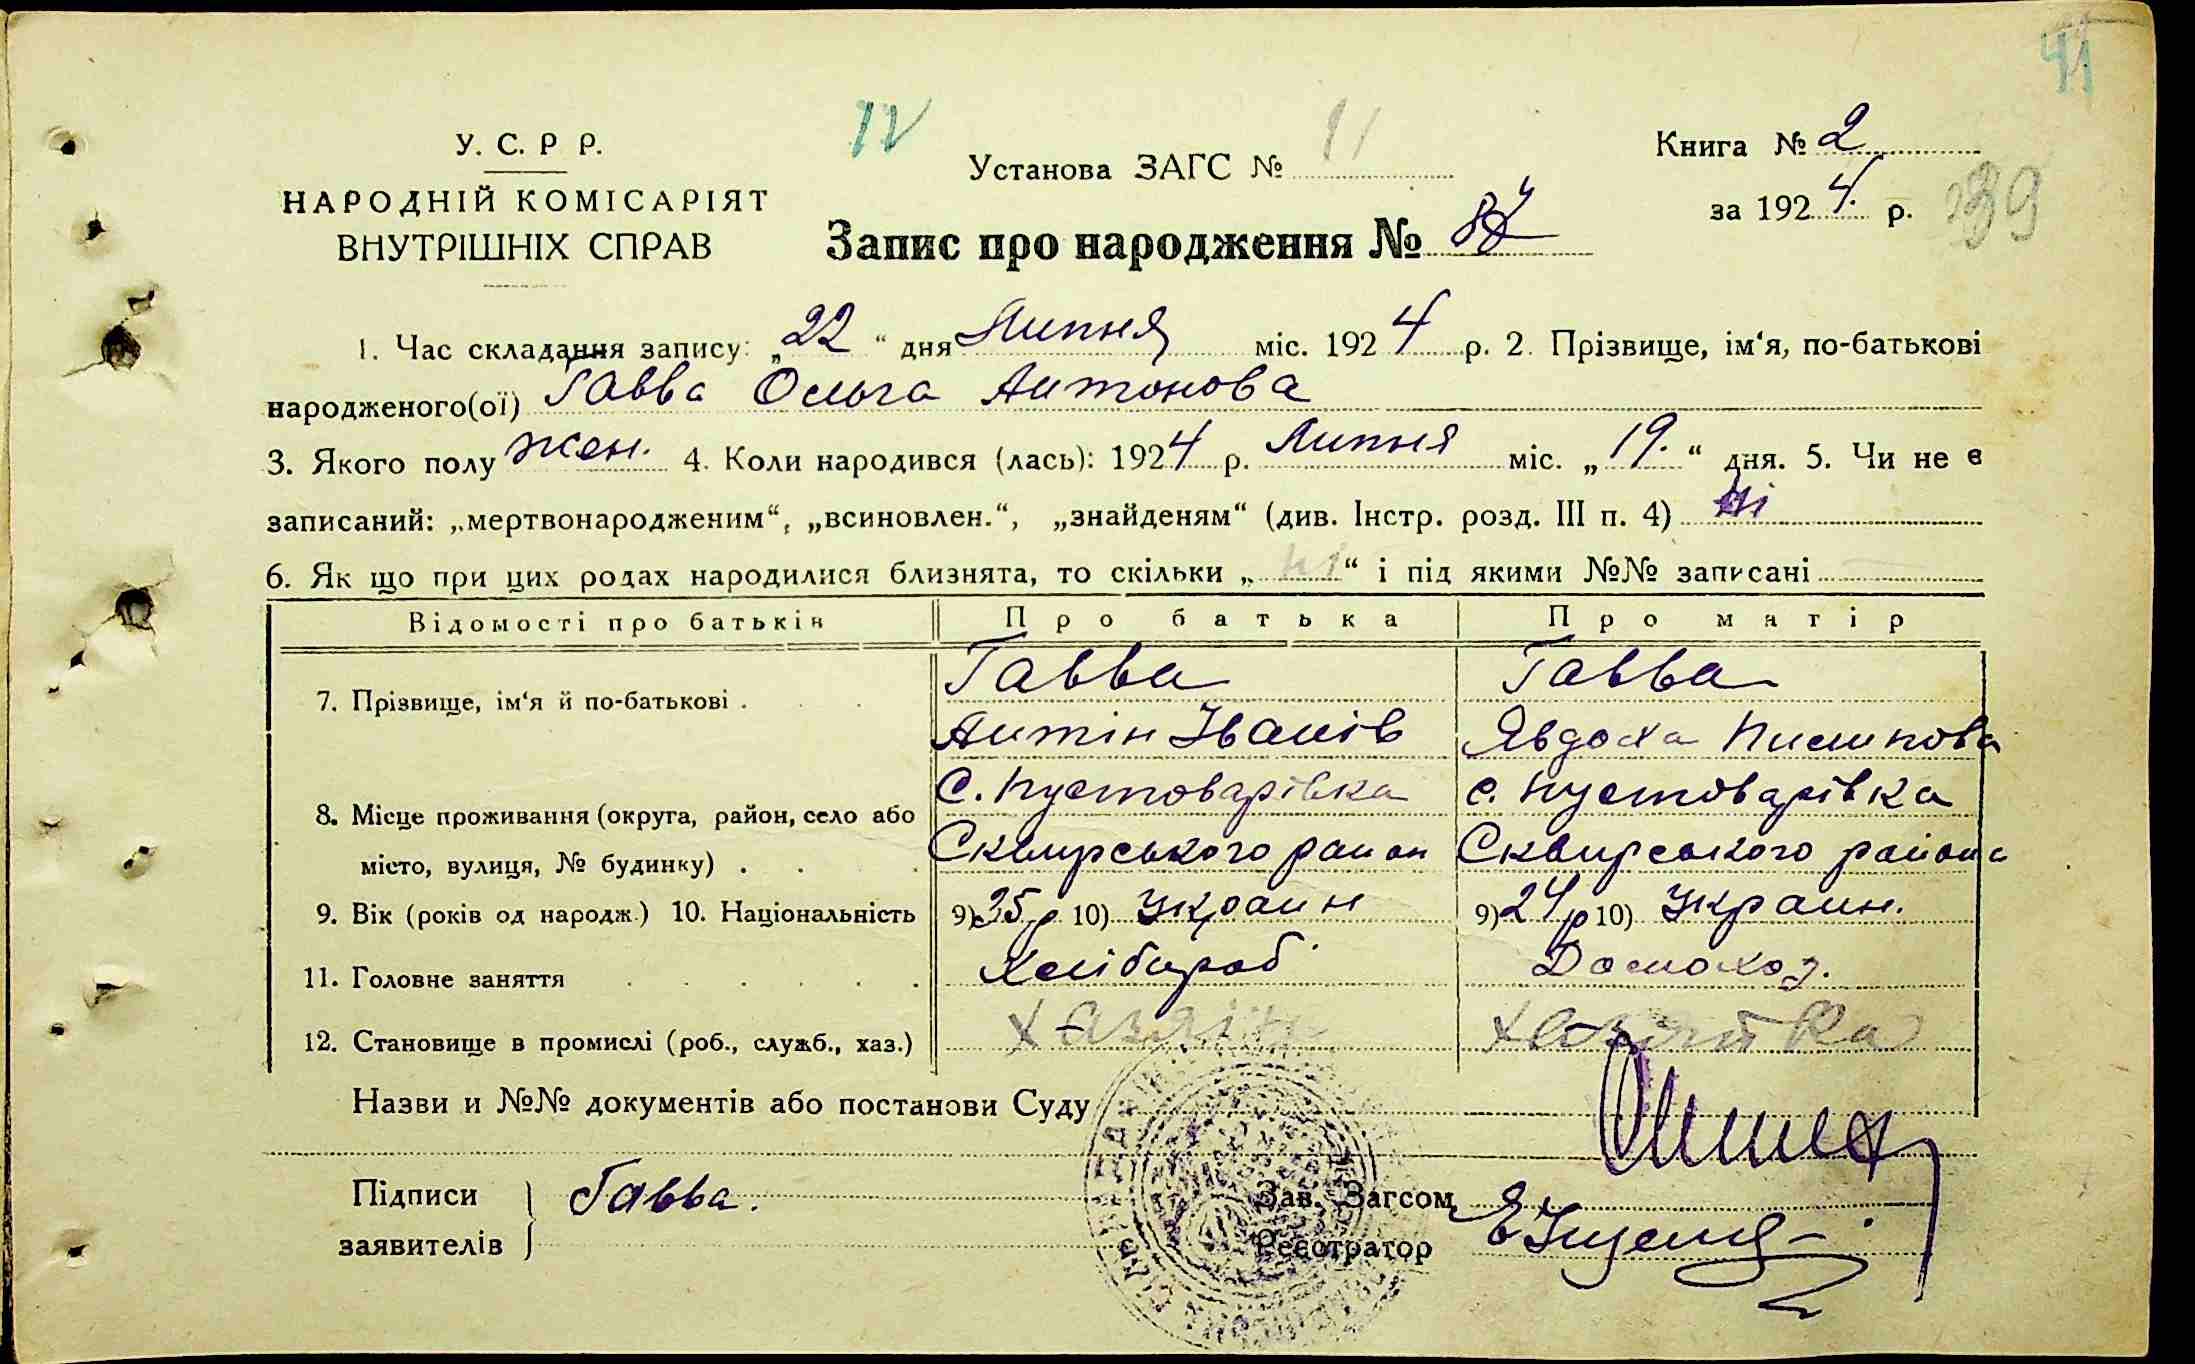 41
У. С. Р Р.
IV
Установа ЗАГС № 11
Книга № 2
НАРОДНІЙ КОМІСАРІЯТ
за 1924 р.
39
ВНУТРІШНІХ СПРАВ
Запис про народження №
1. Час складання запису: „22“ дня Липня міс. 1924 р. 2. Прізвище, ім‘я, по-батькові
народженого(ої) Гавва Ольга Антонова
3. Якого полу жен. 4. Коли народився (лась): 1924 р. Липня міс. „19.“ дня. 5. Чи не є
записаний: „мертвонародженим“, „всиновлен.“, „знайденям“ (див. Інстр. розд. III п. 4) Ні
6. Як що при цих родах народилися близнята, то скільки „ні“ і під якими №№ записані
Відомості про батьків Про батька Про матір
7. Прізвище, ім‘я й по-батькові . Гавва Гавва
Антін Іванів Явдоха Пилипова
8. Місце проживання (округа, район, село або с. Пустоварівка с. Пустоварівка
місто, вулиця, № будинку) . Сквирського район Сквирського района
9. Вік (років од народж.) 10. Національність 9) 25 р 10) Україн 9) 24 р 10) Украин.
11. Головне заняття Хлібороб Домохоз.
12. Становище в промислі (роб., служб., хаз.) хазяїн хазяйка
Назви и №№ документів або постанови Суду
Підписи Гавва. Зав. Загсом
заявителів Реєстратор